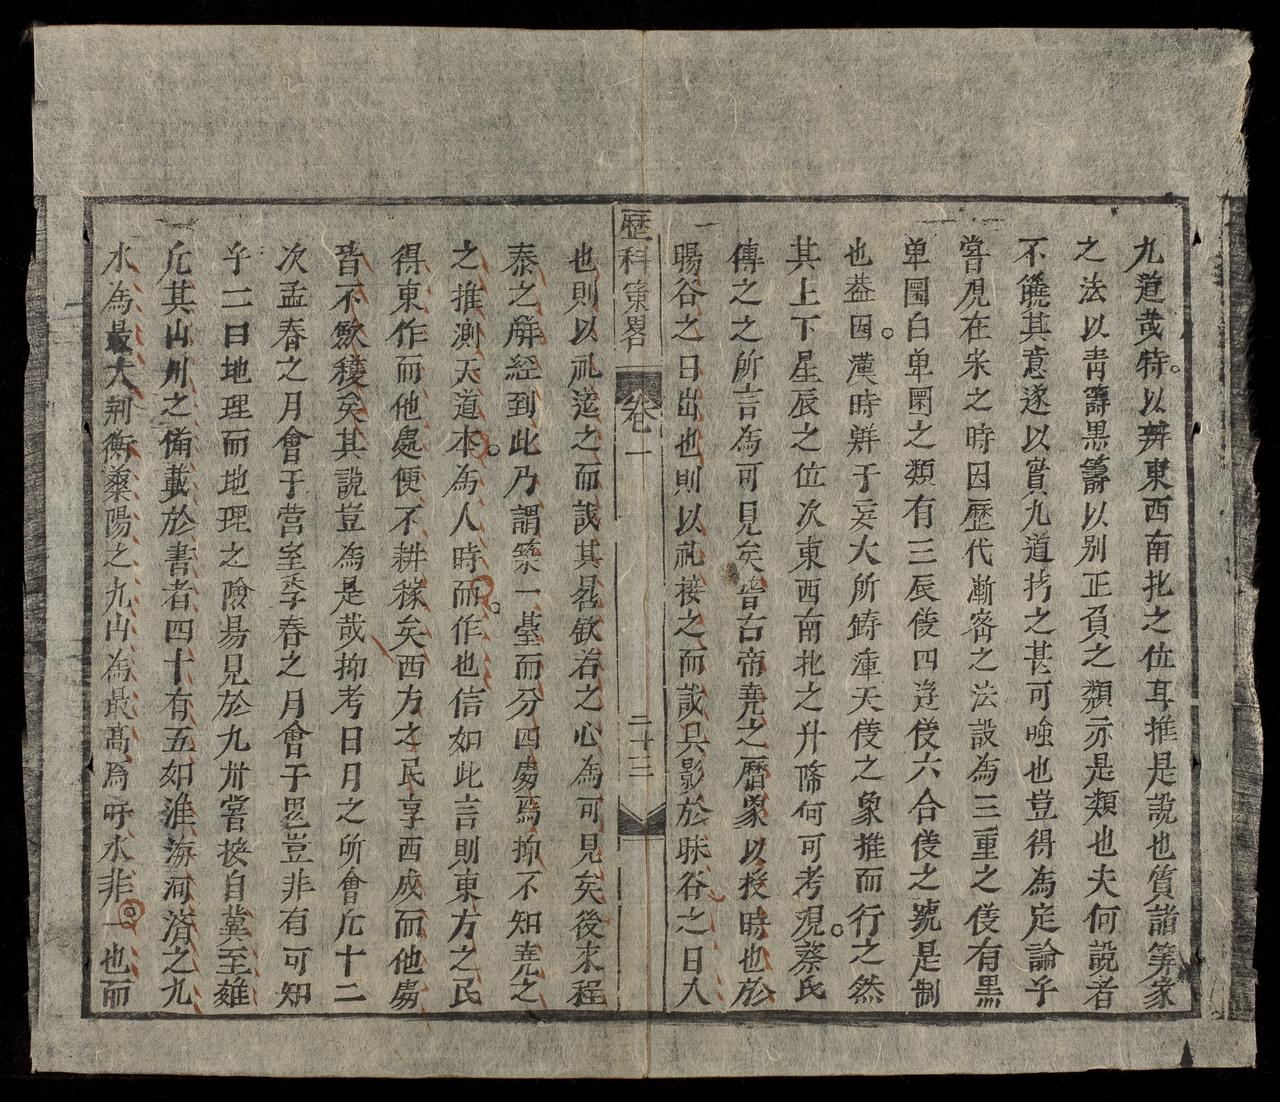 九道㦲特以辨東西南北之位耳推是說也質諸筭家
之法以靑籌黑籌以别正負之類亦是類也夫何說者
不饒其意遂以實九道拷之甚可嗤也豈得為定論乎
嘗見在宋之時因歷代漸密之法設為三重之儀有黑
单圈白单圈之類有三辰儀四逰儀六合儀之號是制
也盖因漢時鮮于妄大所鑄渾天儀之象推而行之然
其上下星辰之位次東西南北之升降何可考現蔡氏
傳之之所言為可見矣昔古帝尭之曆象以授時也於
暘谷之日出也則以礼接之而識其影於昧谷之日入
歷科策畧 卷一 二十三
也則以礼送之而識其晷欽若之心為可見矣後来程
泰之觧經到此乃謂築一臺而分四處焉抑不知尭之
之推測天道本為人時而作也信如此言則東方之民
得東作而他處便不耕稼矣西方之民享西成而他處
皆不斂穫矣其說豈為是㦲抑考日月之所會凢十二
次孟春之月會于营室季春之月會于胃豈非有可知
乎二曰地理而地理之險昜見於九州嘗按自冀至雍
凢其山川之備載於書者四十有五如淮海河濟之九
水為最大荆衡蔡陽之九山為最髙爲吁水非一也而